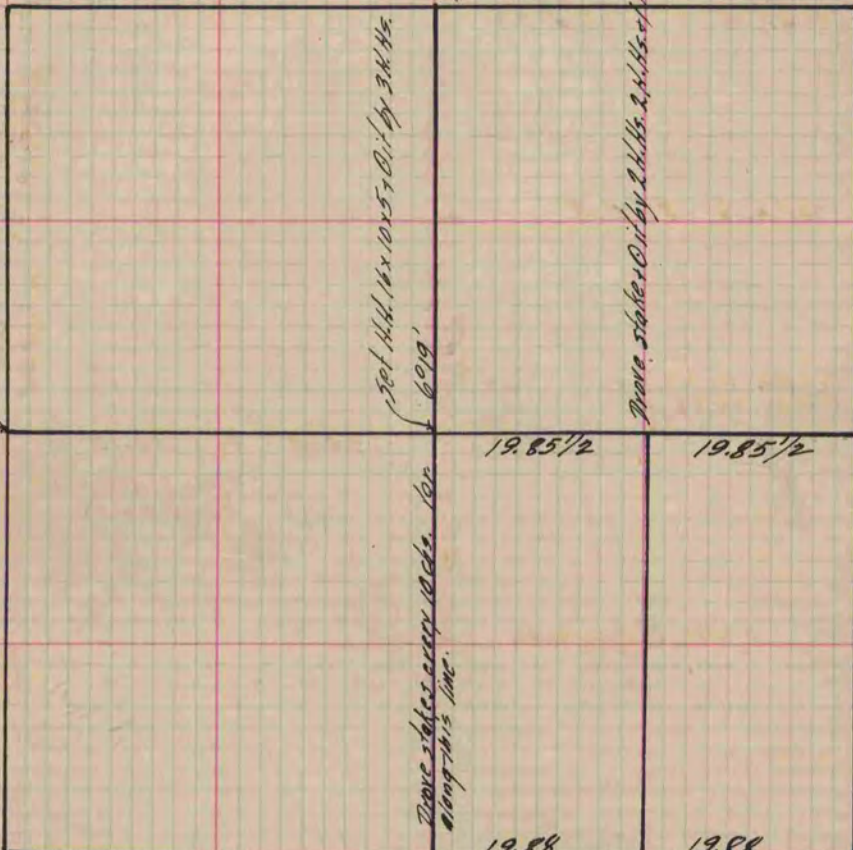 Set H.H. 16x10x5+O.it by 3 H.Hs.
6°19'
Drove stake+O it by 2 H.Hs. 2 H.Hs.+
19.85 1/2 19.85 1/2
Drove stakes every 10 chs.
along this line.
19.88 19.88